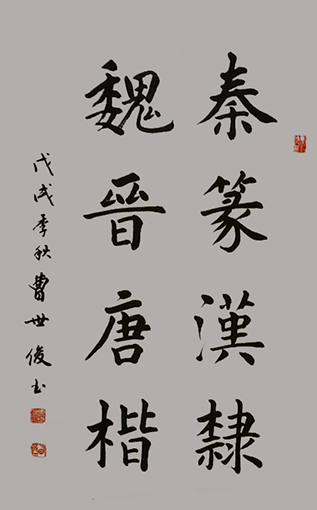 秦篆漢隸
魏晉唐楷
戊戌季秋曹世俊书